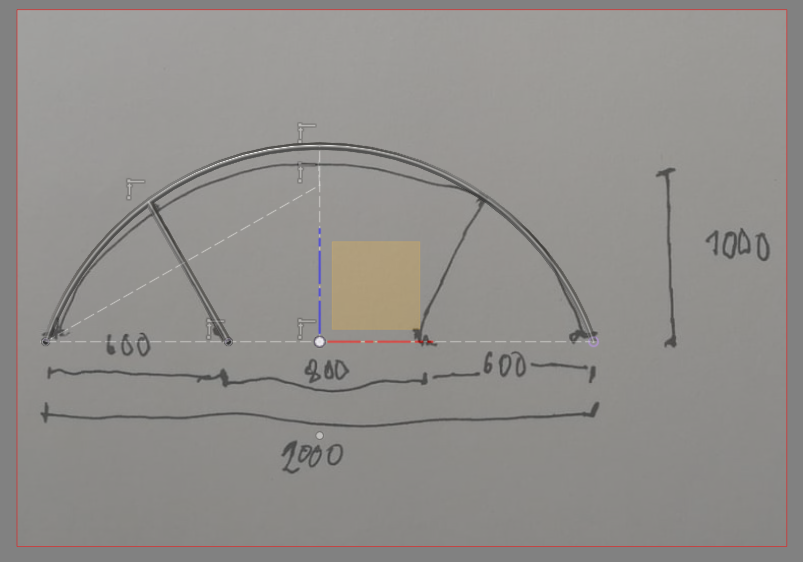 1000
600 800 600
2000